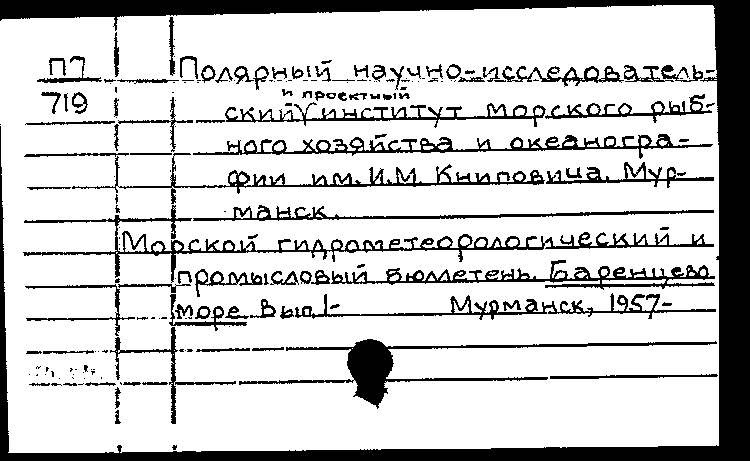 П7 Полярный научно-исследователь-
719 и проектный
ский V институт морского рыб-
ного хозяйства и океаногра-
фии им. И.М. Книповича. Мур-
манск.
Морской гидрометеорологический и
промысловый бюллетень. Баренцево
море. Вып. 1- Мурманск, 1957-